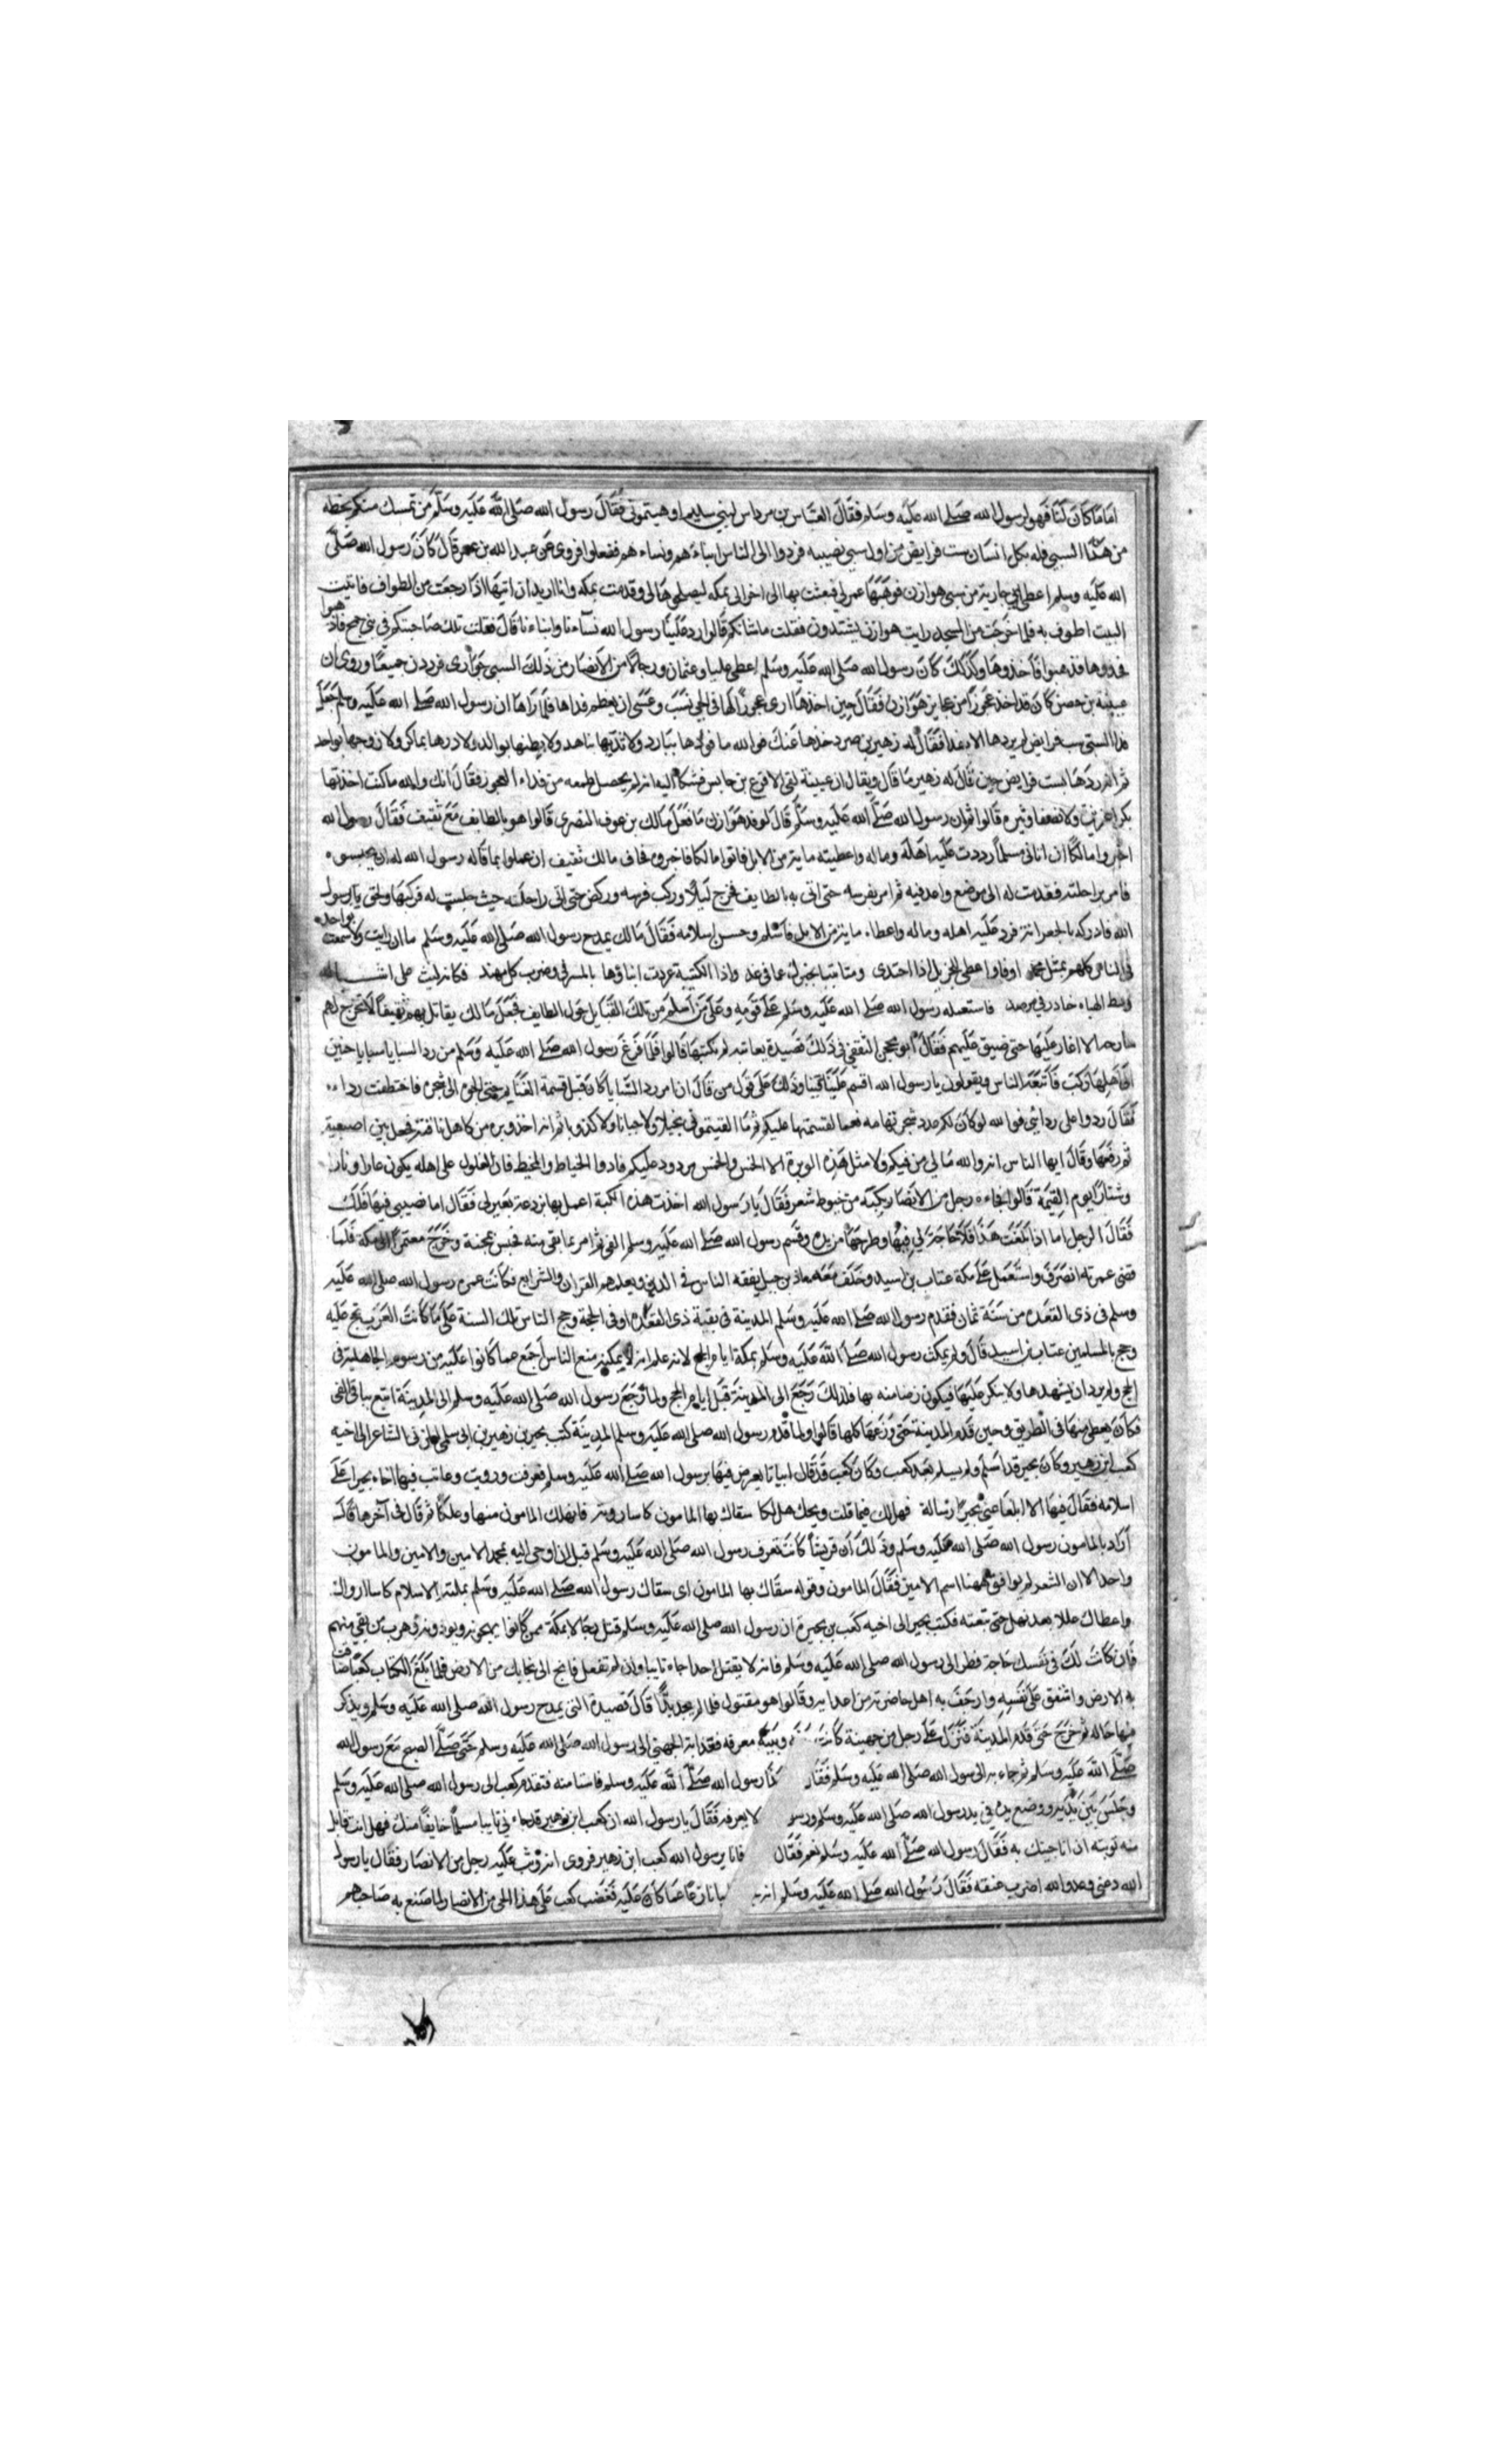 اما ما كان لنا فهو لرسول الله صلى الله عليه وسلم فقال العباس بن مرداس لبني سليم اوهنتموني فقال رسول الله صلى الله عليه وسلم من تمسك منكم بحظه
من هذا السبي فله بكل انسان ست فرايض من اول سبي نصيبه فردوا الى الناس ابناءهم ونساءهم ففعلوا فروى عن عبد الله بن عمر قال كان رسول الله صلى
الله عليه وسلم اعطى جارية من سبي هوازن فوهبها عمر لي فبعثت بها الى اخوالي بمكه ليصلحوها لي وقدمت بمكه وانا اريد ان اتيها اذا رجعت من الطواف فاتيت
البيت اطوف به فلما خرجت من المسجد رايت هوازن يشتدون فقلت ما شانكم قالوا رد علينا رسول الله نساءنا وابناءنا قال فقلت تلك صاحبتكم في بني جمح فاذهبوا
فخذوها فذهبوا فاخذوها وكذلك كان رسول الله صلى الله عليه وسلم اعطى عليا وعثمان ورجالا من الانصار من ذلك السبي جواري فرددن جميعا وروى ان
عيينة بن حصن كان قد اخذ عجوزا من عجايز هوازن فقال حين اخذها ارى عجوزا لها في الحي نسب وعسى ان يعظم فداها فلما راها ان رسول الله صلى الله عليه وسلم جعل
فداالستى ست فرايض لم يردها الا بعد فقال له زهير بن صرد خذها عنك فوالله ما فوها ببارد ولا ثديها بناهد ولا بطنها بوالد ولا درها بماكد ولا زوجها بواجد
ثم انه ردها لست فرايض حين قال له زهير ما قال ويقال ان عيينة لقى الاقرع بن حابس فشكا اليه انه لم يحصل طمعه من فداء العجوز فقال انك والله ما كنت اخذتها
بكرا عزيزة ولا نصفا وثيره قالوا ثم ان رسول الله صلى الله عليه وسلم قال لوفد هوازن ما فعل مالك بن عوف النصري قالوا هو بالطايف مع ثقيف فقال رسول الله
اخبروا مالكا ان اتاني مسلما رددت عليه اهله وماله واعطيته ماية من الابل فاتوا مالكا فاخبروه فخاف مالك ثقيف ان علموا بما قاله رسول الله له ان يحبسوه
فامر براحلته فقدمت له الى موضع واعد فيه ثم امر بفرسه حتى اتى به بالطايف فخرج ليلا وركب فرسه وركض حتى اتى راحلته حيث حلست له فركبها ولحق برسول
الله فادركه بالجعرانة فرد عليه اهله وماله واعطاه ماية من الابل فاسلم وحسن اسلامه فقال مالك يمدح رسول الله صلى الله عليه وسلم ما ان رايت ولا سمعت بواحد
في الناس كلهم بمثل محمد اوفا واعطى للجزيل اذا احتدى ومتا تشا يخبرك عما في غد واذا الكتيبة عردت ابناؤها بالمسرفى وضرب كل مهند فكانه ليث على اشباله
وسط الهباءه خادر في مرصد فاستعمله رسول الله صلى الله عليه وسلم على قومه وعلى من اسلم من تلك القبايل حول الطايف فجعل مالك يقاتل بهم ثقيفا لا يخرج لهم
سارح الا اغار عليها حتى ضيق عليهم فقال ابو محجن الثقفي في ذلك قصيدة يعاتبه لم نكتبها قالوا فلما فرغ رسول الله صلى الله عليه وسلم من رد السبايا سبايا حنين
الى اهلها وركب فاتبعه الناس ويقولون يا رسول الله اقسم علينا فيئنا وذلك على قول من قال انما رد السبايا كان قبل قسمة الغنايم حتى الجوه الى شجره فاختطفت رداءه
فقال ردوا على ردائي فوالله لو كان لكم عدد شجر تهامه نعما لقسمتها عليكم ثم ما القيتموني بخيلا ولا جبانا ولا كذوبا ثم انه اخذ وبره من كاهل ناقته فجعل بين اصبعيه
ثم رفعها وقال ايها الناس انه والله مالي من فيكم ولا مثل هذه الوبرة الا الخمس والخمس مردود عليكم فادوا الخياط والمخيط فان الغلول على اهله يكون عارا ونارا
وشنارا يوم القيمة قالوا فجاءه رجل من الانصار بكبة من خيوط شعر فقال يا رسول الله اخذت هذه الكبة اعمل بها بردعة بعير لي فقال اما نصيبي فيها فلك
فقال الرجل اما اذا بلغت هذا فلا حاجة لي فيها وطرحها من يده وقسم رسول الله صلى الله عليه وسلم الفئ ثم امر بما بقى منه فحبس بمجنة وخرج معتمرا الى مكة فلما
قضى عمرته انصرف واستعمل على مكة عتاب بن اسيد وخلف معه معاذ بن جبل يفقه الناس في الدين ويعلمهم القران والشرايع فكانت عمره رسول الله صلى الله عليه
وسلم في ذي القعده من سنة ثمان فقدم رسول الله صلى الله عليه وسلم المدينة في بقية ذي القعده او في الحجة وحج الناس تلك السنة على ما كانت العرب تحج عليه
وحج بالمسلمين عتاب بن اسيد قال ولم يمكث رسول الله صلى الله عليه وسلم بمكة ايام الحج لانه علم انه لا يمكنه منع الناس اجمع عما كانوا عليه من رسوم الجاهلية في
الحج ولم يرد ان يشهدها ولا ينكر عليها فيكون رضا منه بها فلذلك رجع الى المدينة قبل ايام الحج ولما رجع رسول الله صلى الله عليه وسلم الى المدينة اتبع بباقي الفئ
فكان يعطى منها في الطريق وحين قدم المدينة حتى وزعها كلها قالوا ولما قدم رسول الله صلى الله عليه وسلم المدينة كتب بحير بن زهير بن ابي سلمى المزني الشاعر الى اخيه
كعب ابن زهير وكان بحير قد اسلم ولم يسلم بعد كعب وكان كعب قد قال ابياتا يعرض فيها برسول الله صلى الله عليه وسلم فعرفت ورويت وعاتب فيها اخاه بحيرا على
اسلامه فقال فيها الا ابلغا عني بحيرا رسالة فهل لك فيما قلت ويحك هل لكا سقاك بها المامون كاسا روية فانهلك المامون منها وعلكا ثم قال في آخرها قال
اراد بالمامون رسول الله صلى الله عليه وسلم وذلك ان قريشا كانت تعرف رسول الله صلى الله عليه وسلم قبل ان اوحى اليه بمحمد الامين والامين والمامون
واحد الا ان الشعر لم يوافق ههنا اسم الامين فقال المامون وقوله سقاك بها المامون اى سقاك رسول الله صلى الله عليه وسلم بملة الاسلام كاسا
واعطاك عللا بعد نهل حتى تبعته فكتب بحير الى اخيه كعب بن بحيرة ان رسول الله صلى الله عليه وسلم قتل رجالا بمكة ممن كانوا يهجونه ويوذونه وهرب من بقى منهم
فان كانت لك في نفسك حاجة فطر الى رسول الله صلى الله عليه وسلم فانه لا يقتل احدا جاءه تايبا وان لم تفعل فانج الى نجايك من الارض فلما بلغ الكتاب كعبا ضاقت
به الارض واشفق على نفسه وارجف به اهل حاضرته من اعدايه وقالوا هو مقتول فلما لم يجد بدا قال قصيدة التي يمدح رسول الله صلى الله عليه وسلم ويذكر
فيها حاله ثم خرج حتى قدم المدينة فنزل على رجل من جهينة كانت وبينه معرفه فغدا به الجهني الى رسول الله صلى الله عليه وسلم حتى صلى الصبح مع رسول الله
صلى الله عليه وسلم ثم جاء به الى رسول الله صلى الله عليه وسلم فقال رسول الله صلى الله عليه وسلم فاستامنه فتقدم كعب الى رسول الله صلى الله عليه وسلم
وجلس بين يديه ووضع يده في يد رسول الله صلى الله عليه وسلم ورسو لا يعرفه فقال يا رسول الله ان كعب ابن زهير قد جاءني تايبا مسلما خايفا منك فهل انت قابل
منه توبته ان انا جيتك به فقال رسول الله صلى الله عليه وسلم نعم فقال فانا يرسول الله كعب ابن زهير فروى انه وثب عليه رجل من الانصار فقال يا رسول
الله دعني وعدو الله اضرب عنقه فقال رسول الله صلى الله عليه وسلم انه نازعا عما كان عليه فغضب كعب على هذا الحي من الانصار لما صنع به صاحبهم